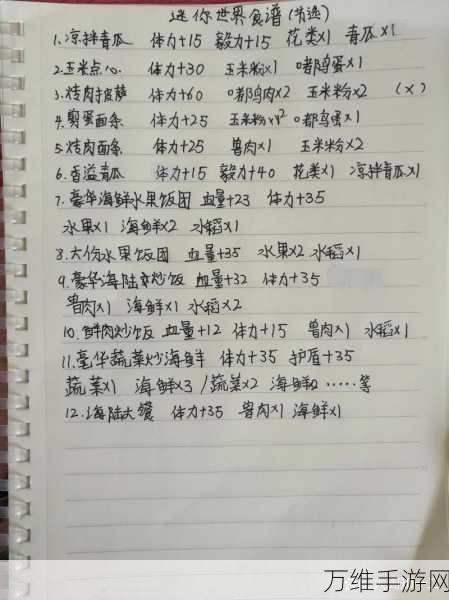 迷你世界食谱(节选)
1.凉拌青瓜 体力+15 毅力+15 花类x1 青瓜x1
2.玉米点心 体力+30 玉米粉x1 嘟嘟蛋x1
3.烤肉披萨 体力+60 嘟嘟肉x2 玉米粉x2 (x)
4.煎蛋面条 体力+25 玉米粉x2 嘟嘟蛋x1
5.烤肉面条 体力+25 兽肉x1 玉米粉x2
6.香溢青瓜 体力+15 毅力+40 花类x1 凉拌青瓜x1
7.豪华海鲜水果饭团 血量+23 体力+35
水果x1 海鲜x2 水稻x1
8.大份水果饭团 血量+35 水果x2 水稻x1
9.豪华海陆炒饭 血量+32 体力+35
兽肉x1 海鲜x1 水稻x2
10.鲜肉炒饭 血量+12 体力+15 兽肉x1 水稻x1
11.豪华蔬菜炒海鲜 体力+35 护盾+35
蔬菜x1 海鲜x3 /蔬菜x2 海鲜2 ……等
12.海陆大餐 体力+35 兽肉x1 海鲜x1
万维手游网